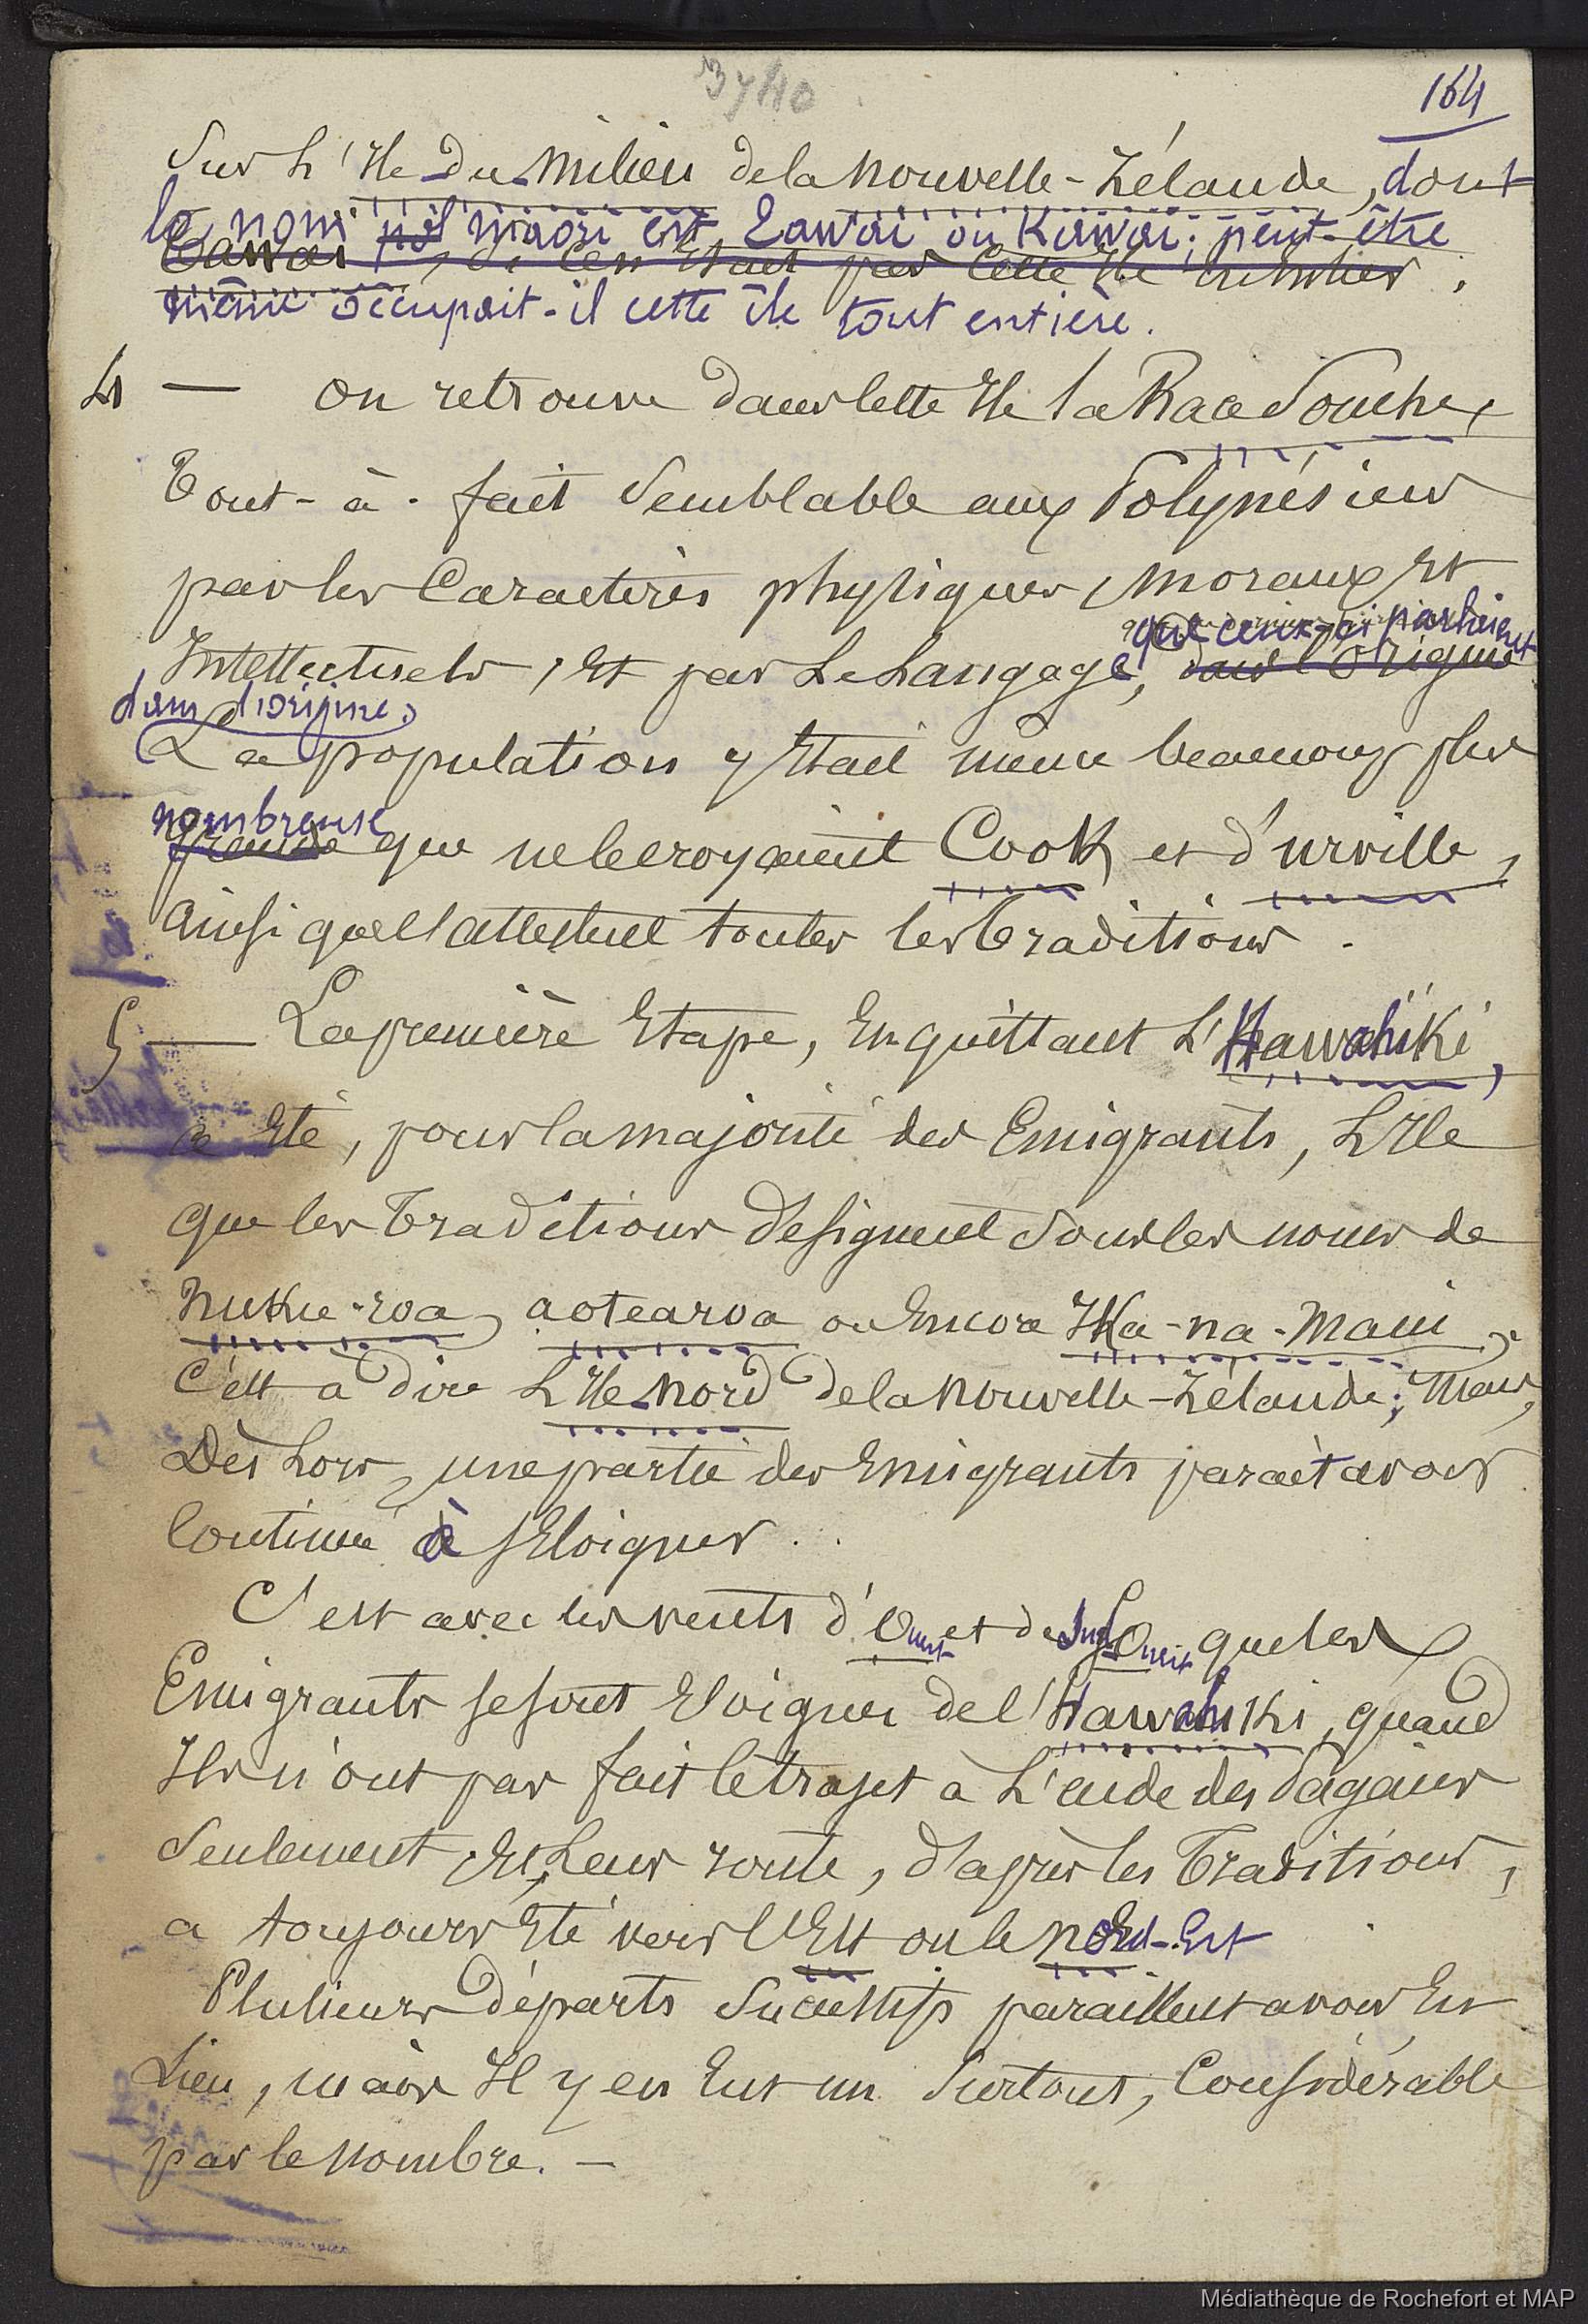 3740
164
Sur L'Ile-du-Milieu de la Nouvelle-Zélande, dont
le nom maori est Tawaï ou Kawaï; peut-être
Tawaï, si ce n'était pas cette Ile entière.
même occupait-il cette île tout entière.
4 — On retrouve dans cette Ile la Race Souche,
Tout-à-fait Semblable aux Polynésiens
par les Caractères physiques, Moraux Et
que ceux-ci parlaient
Intellectuels, Et par Le Langage, dans l'origine
dans l'origine.
La population y Etait même beaucoup plus
nombreuse
grande que ne le croyaient Cook et d'Urville,
Ainsi que l'attestent toutes les Traditions.
5 — La première Etape, En quittant L'Hawahiki,
a Eté, pour la majorité des Emigrants, L'Ile
que les Traditions désignent Sous les noms de
Nuku-roa, aotearoa ou Encore IKa-na-Maui,
C'est à dire L'Ile-Nord de la Nouvelle-Zélande; Mais,
Dès Lors, une partie des Emigrants paraît avoir
Continué à s'Eloigner.
C'est avec les vents d'Ouest et de Sud-Ouest que les
Emigrants se sont Eloignés de l'Hawahiki, quand
Ils n'ont pas fait le trajet à L'aide des Pagaies
Seulement, Et Leur route, d'après les Traditions,
a toujours Eté vers l'Est ou le Nord-Est
Plusieurs départs Successifs paraissent avoir Eu
Lieu, mais Il y en Eut un Surtout, Considérable
par le Nombre. —
Médiathèque de Rochefort et MAP